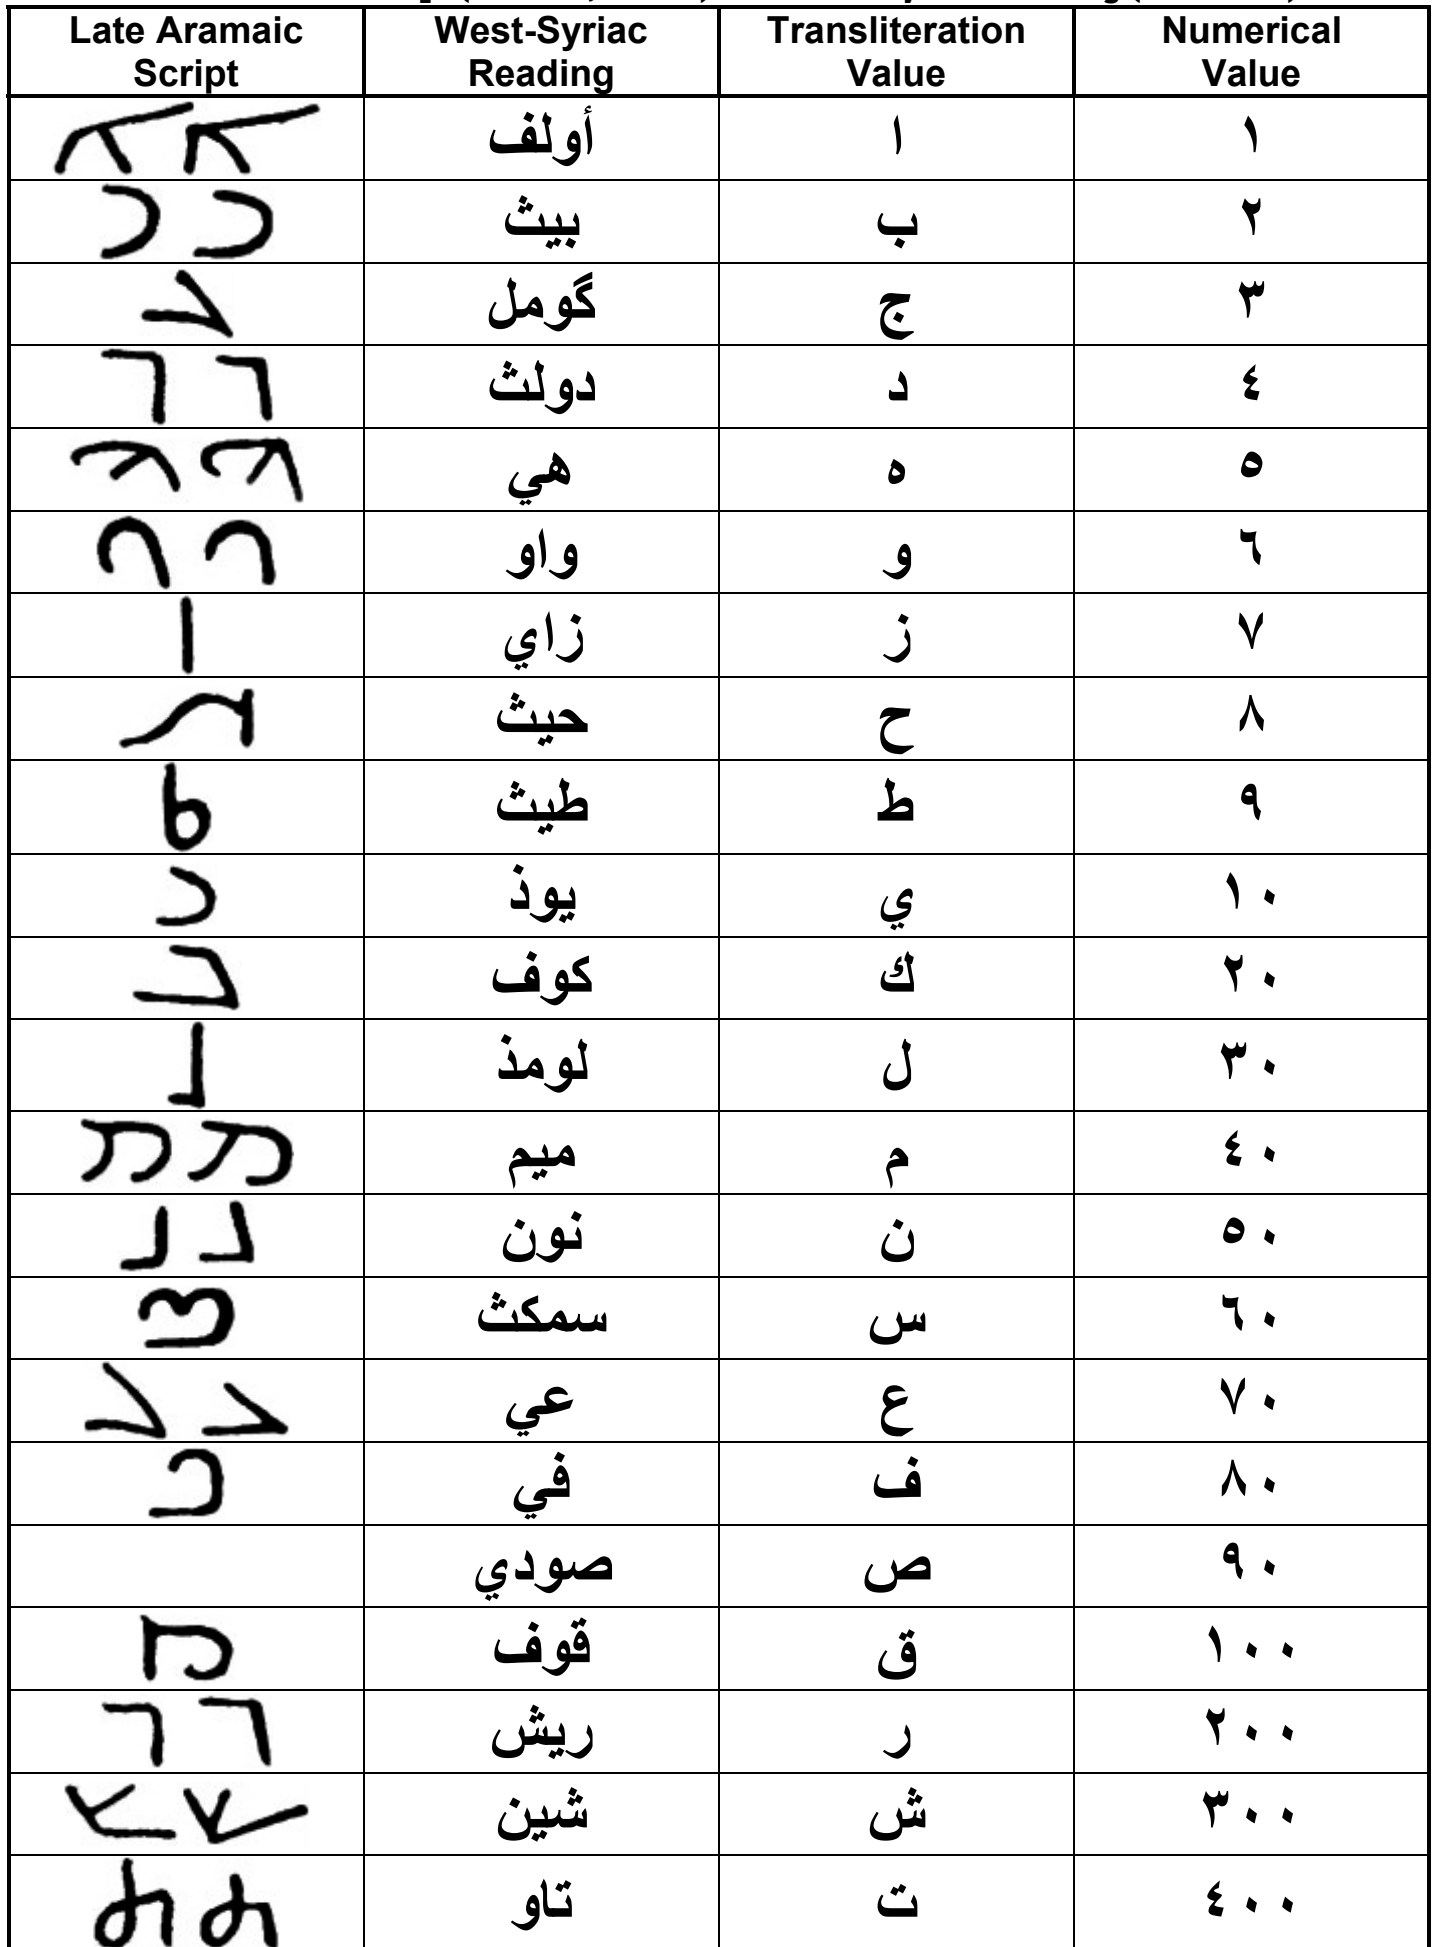 Late Aramaic Script | West-Syriac Reading | Transliteration Value | Numerical Value
أولف | ا | ١
بيث | ب | ٢
گومل | ج | ٣
دولث | د | ٤
هي | ه | ٥
واو | و | ٦
زاي | ز | ٧
حيث | ح | ٨
طيث | ط | ٩
يوذ | ي | ١٠
كوف | ك | ٢٠
لومذ | ل | ٣٠
ميم | م | ٤٠
نون | ن | ٥٠
سمكث | س | ٦٠
عي | ع | ٧٠
في | ف | ٨٠
صودي | ص | ٩٠
قوف | ق | ١٠٠
ريش | ر | ٢٠٠
شين | ش | ٣٠٠
تاو | ت | ٤٠٠